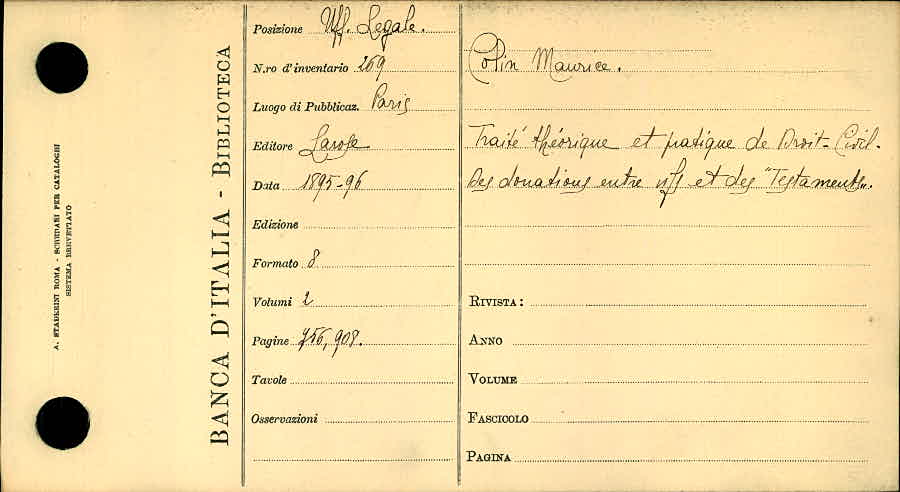 A. STADERINI ROMA - SCHEDARI PER CATALOGHI
SISTEMA BREVETTATO
BANCA D'ITALIA - BIBLIOTECA
Posizione Uff. Legale.
N.ro d'inventario 269
Luogo di Pubblicaz. Paris
Editore Larose
Data 1895-96
Edizione
Formato 8
Volumi 2
Pagine 756, 908.
Tavole
Osservazioni
Colin Maurice.
Traité théorique et pratique de Droit-Civil.
Des donations entre vifs et des "Testaments".
RIVISTA:
ANNO
VOLUME
FASCICOLO
PAGINA